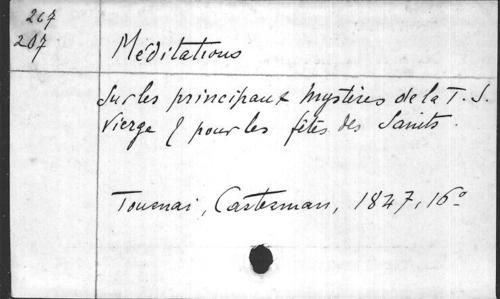 267
207
Méditations
Sur les principaux Mystères de la T. S.
Vierge & pour les fêtes des Saints.
Tournai, Casterman, 1847, 16°